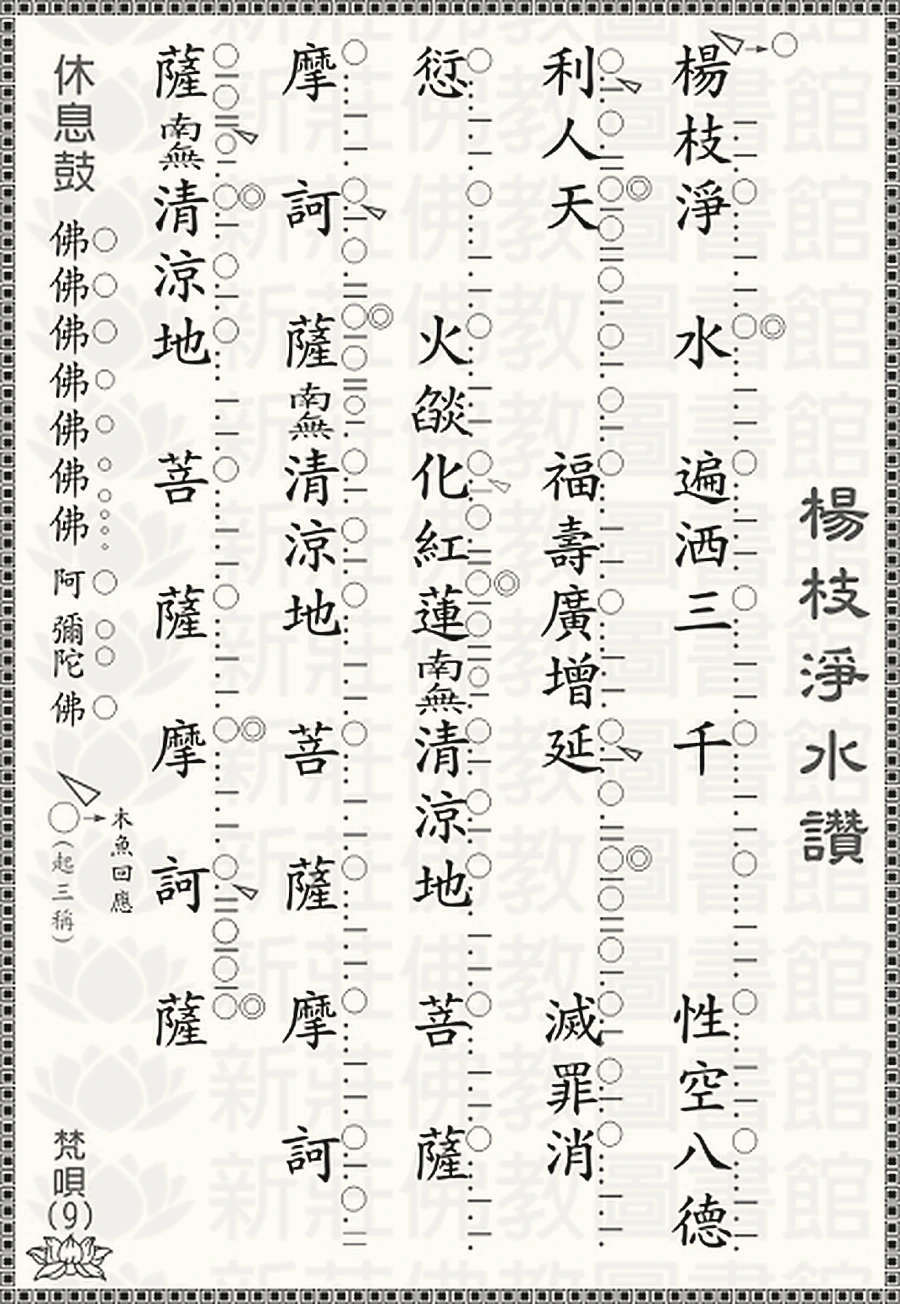 楊枝淨水讚
楊枝淨水遍洒三千性空八德
利人天福壽廣增延滅罪消
愆火燄化紅蓮南無清涼地菩薩
摩訶薩南無清涼地菩薩摩訶
薩南無清涼地菩薩摩訶薩
木魚回應
休息鼓佛佛佛佛佛佛佛阿彌陀佛(起三稱)
梵唄(9)
新莊佛教圖書館